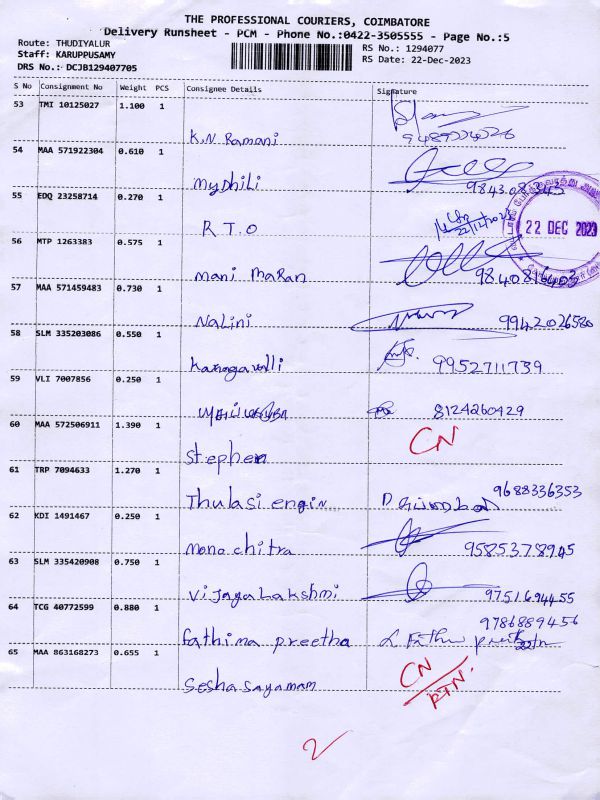 THE PROFESSIONAL COURIERS, COIMBATORE
Delivery Runsheet - PCM - Phone No.:0422-3505555 - Page No.:5
Route: THUDIYALUR
RS No.: 1294077
Staff: KARUPPUSAMY
RS Date: 22-Dec-2023
DRS No.: DCJB129407705
S No Consignment No Weight PCS Consignee Details Signature
53 TMI 10125027 1.100 1
K.N Ramani
54 MAA 571922304 0.610 1
Mydhili
55 EDQ 23258714 0.270 1
R T O
22 DEC 2023
56 MTP 1263383 0.575 1
Mani Maran
57 MAA 571459483 0.730 1
Nalini 9942026580
58 SLM 335203086 0.550 1
Kanagavalli 9952711739
59 VLI 7007856 0.250 1
8124260429
60 MAA 572506911 1.390 1
Stephen CN
61 TRP 7094633 1.270 1
Thulasi engin 9688336353
62 KDI 1491467 0.250 1
Mono chitra 9585378945
63 SLM 335420908 0.750 1
Vijaya Lakshmi 9751694455
64 TCG 40772599 0.880 1
9786889456
Fathima Preetha
65 MAA 863168273 0.655 1
Sesha Sayanam CN
RTN.
2